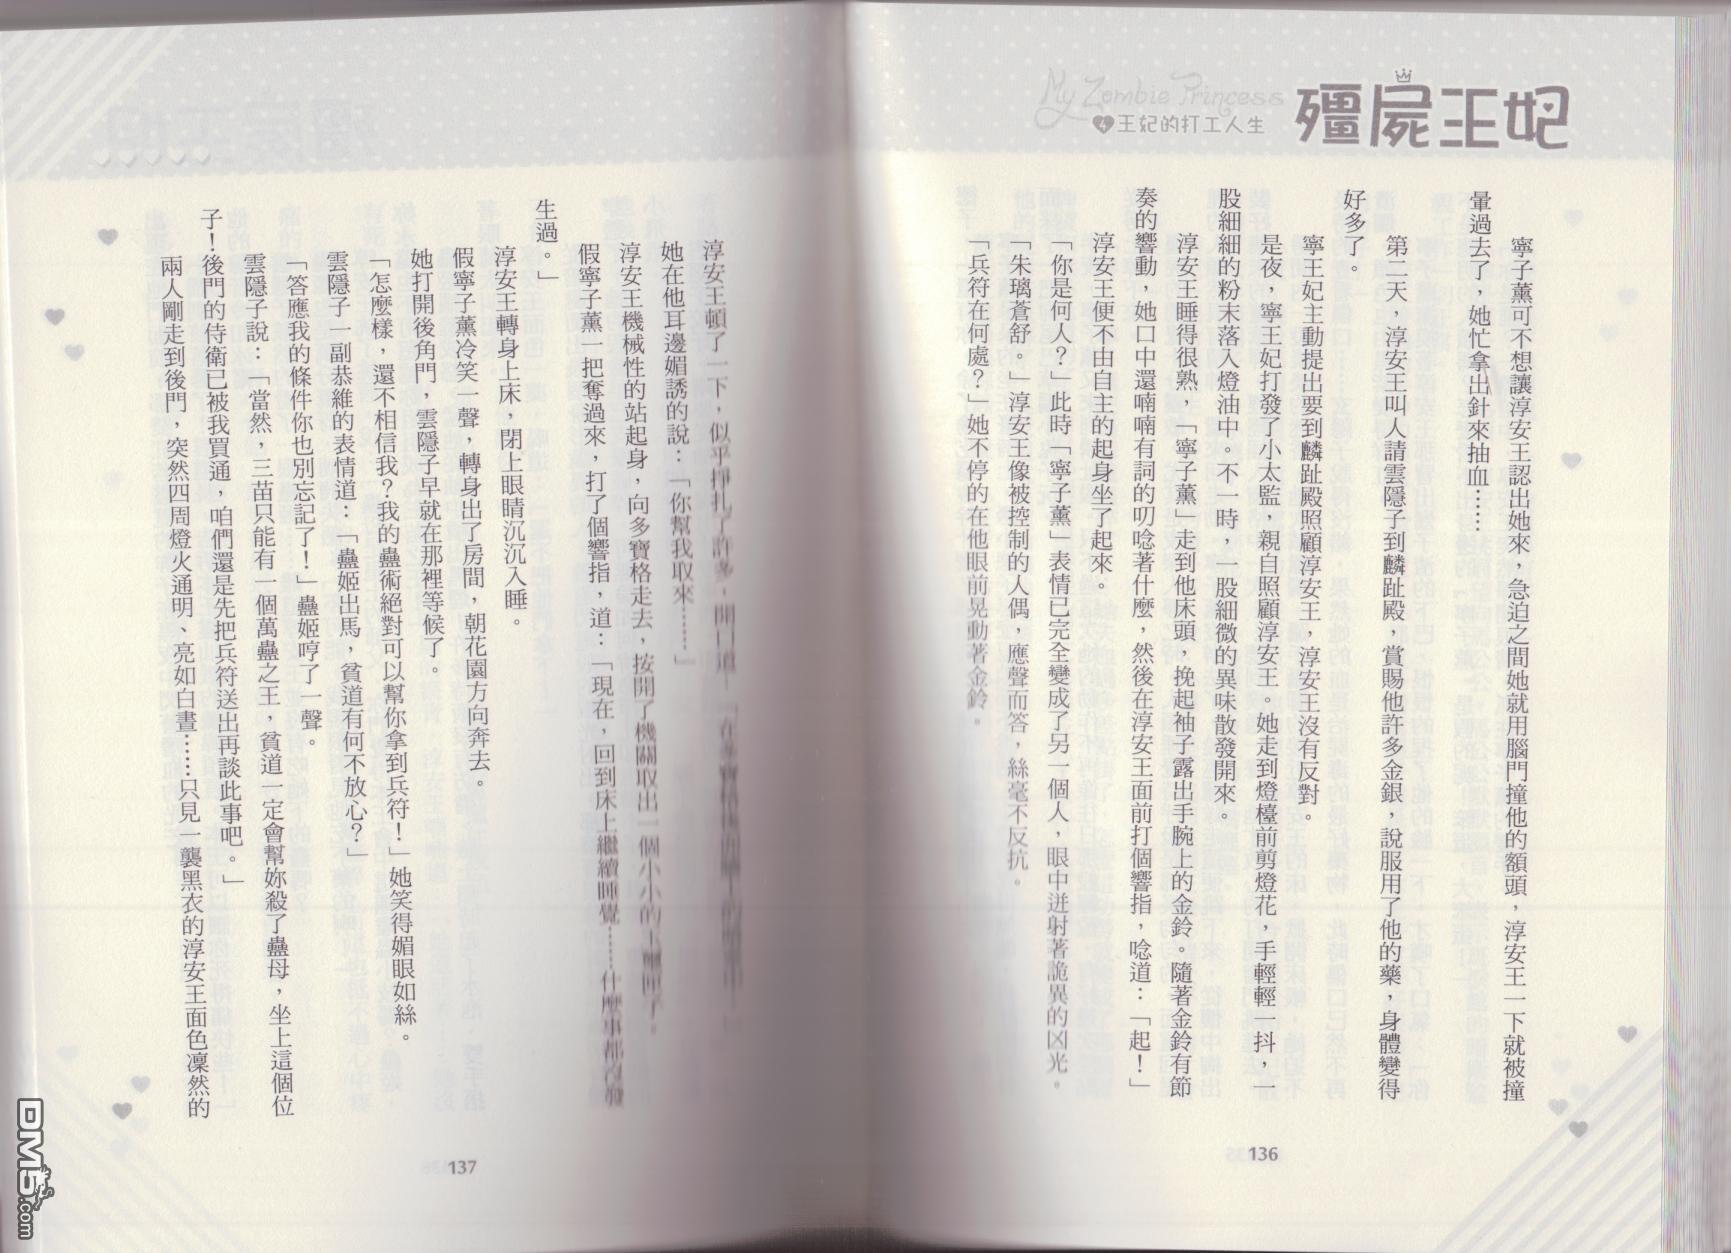 My Zombie Princess
4 王妃的打工人生
殭屍王妃
寧子薰可不想讓淳安王認出她來，急迫之間她就用腦門撞他的額頭，淳安王一下就被撞
暈過去了，她忙拿出針來抽血……
第二天，淳安王叫人請雲隱子到麟趾殿，賞賜他許多金銀，說服用了他的藥，身體變得
好多了。
寧王妃主動提出要到麟趾殿照顧淳安王，淳安王沒有反對。
是夜，寧王妃打發了小太監，親自照顧淳安王。她走到燈檯前剪燈花，手輕輕一抖，一
股細細的粉末落入燈油中。不一時，一股細微的異味散發開來。
淳安王睡得很熟，「寧子薰」走到他床頭，挽起袖子露出手腕上的金鈴。隨著金鈴有節
奏的響動，她口中還喃喃有詞的叨唸著什麼，然後在淳安王面前打個響指，唸道：「起！」
淳安王便不由自主的起身坐了起來。
「你是何人？」此時「寧子薰」表情已完全變成了另一個人，眼中迸射著詭異的凶光。
「朱璃蒼舒。」淳安王像被控制的人偶，應聲而答，絲毫不反抗。
「兵符在何處？」她不停的在他眼前晃動著金鈴。
136
淳安王頓了一下，似乎掙扎了許多，開口道：「在多寶格後
她在他耳邊媚誘的說：「你幫我取來……」
淳安王機械性的站起身，向多寶格走去，按開了機關取出一個小小的匣子。
假寧子薰一把奪過來，打了個響指，道：「現在，回到床上繼續睡覺……什麼事都沒發
生過。」
淳安王轉身上床，閉上眼睛沉沉入睡。
假寧子薰冷笑一聲，轉身出了房間，朝花園方向奔去。
她打開後角門，雲隱子早就在那裡等候了。
「怎麼樣，還不相信我？我的蠱術絕對可以幫你拿到兵符！」她笑得媚眼如絲。
雲隱子一副恭維的表情道：「蠱姬出馬，貧道有何不放心？」
「答應我的條件你也別忘記了！」蠱姬哼了一聲。
雲隱子說：「當然，三苗只能有一個萬蠱之王，貧道一定會幫妳殺了蠱母，坐上這個位
子！後門的侍衛已被我買通，咱們還是先把兵符送出再談此事吧。」
兩人剛走到後門，突然四周燈火通明、亮如白晝……只見一襲黑衣的淳安王面色凜然的
137
DM5.com